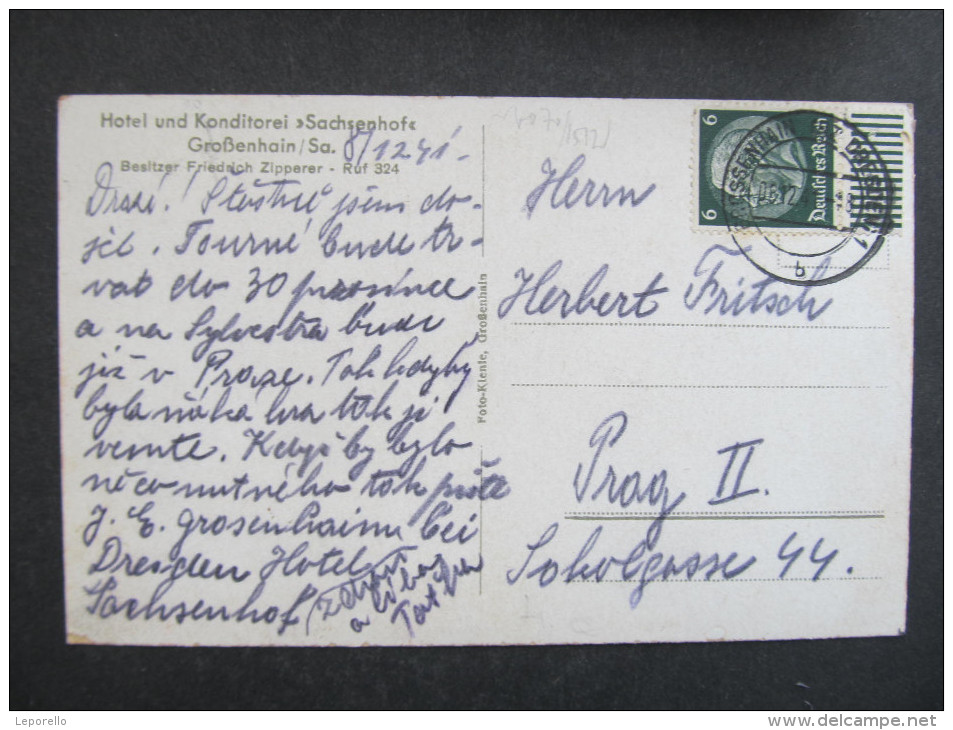 Hotel und Konditorei »Sachsenhof«
Großenhain/Sa. 8/12 41.
Besitzer Friedrich Zipperer - Ruf 324
Drazí! Štěstně jsem do-
jel. Tourné bude tr-
vat do 30 prosince
a na Sylvestra budu
již v Praze. Tak kdyby
byla náká hra tak ji
vemte. Když by bylo
něco nutného tak pište
J. E. Grosenhainu bei
Dresden Hotel
Sachsenhof
Zdraví
a líbá
Tatíček
Foto-Klente, Großenhain
Herrn
Herbert Fritsch
Prag II.
Sokolgasse 44.
6
6
Deutsches Reich
DRESDEN 1
b
Leporello
www.delcampe.net